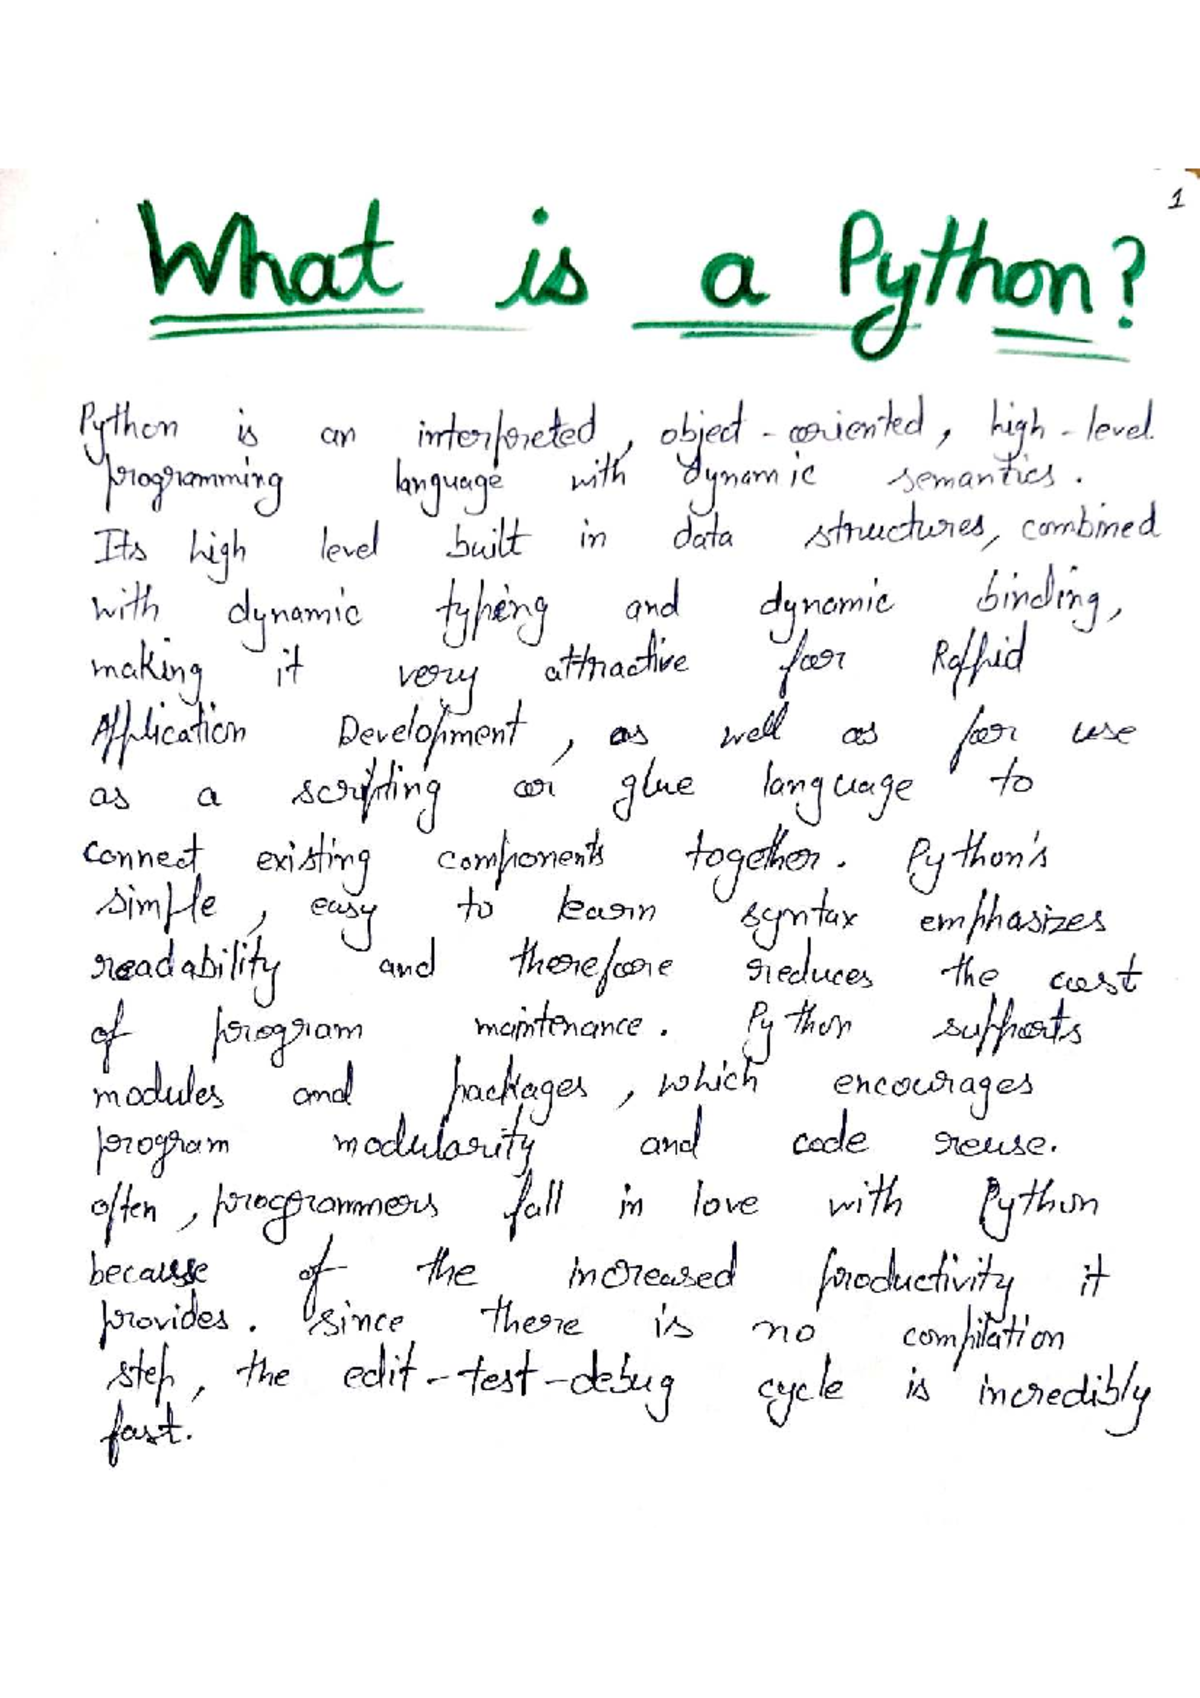 1
What is a Python?
Python is an interpreted, object-oriented, high-level
programming language with dynamic semantics.
Its high level built in data structures, combined
with dynamic typing and dynamic binding,
making it very attractive for Rapid
Application Development, as well as for use
as a scripting or glue language to
connect existing components together. Python's
simple, easy to learn syntax emphasizes
readability and therefore reduces the cost
of program maintenance. Python supports
modules and packages, which encourages
program modularity and code reuse.
often, programmers fall in love with Python
because of the increased productivity it
provides. Since there is no compilation
step, the edit-test-debug cycle is incredibly
fast.